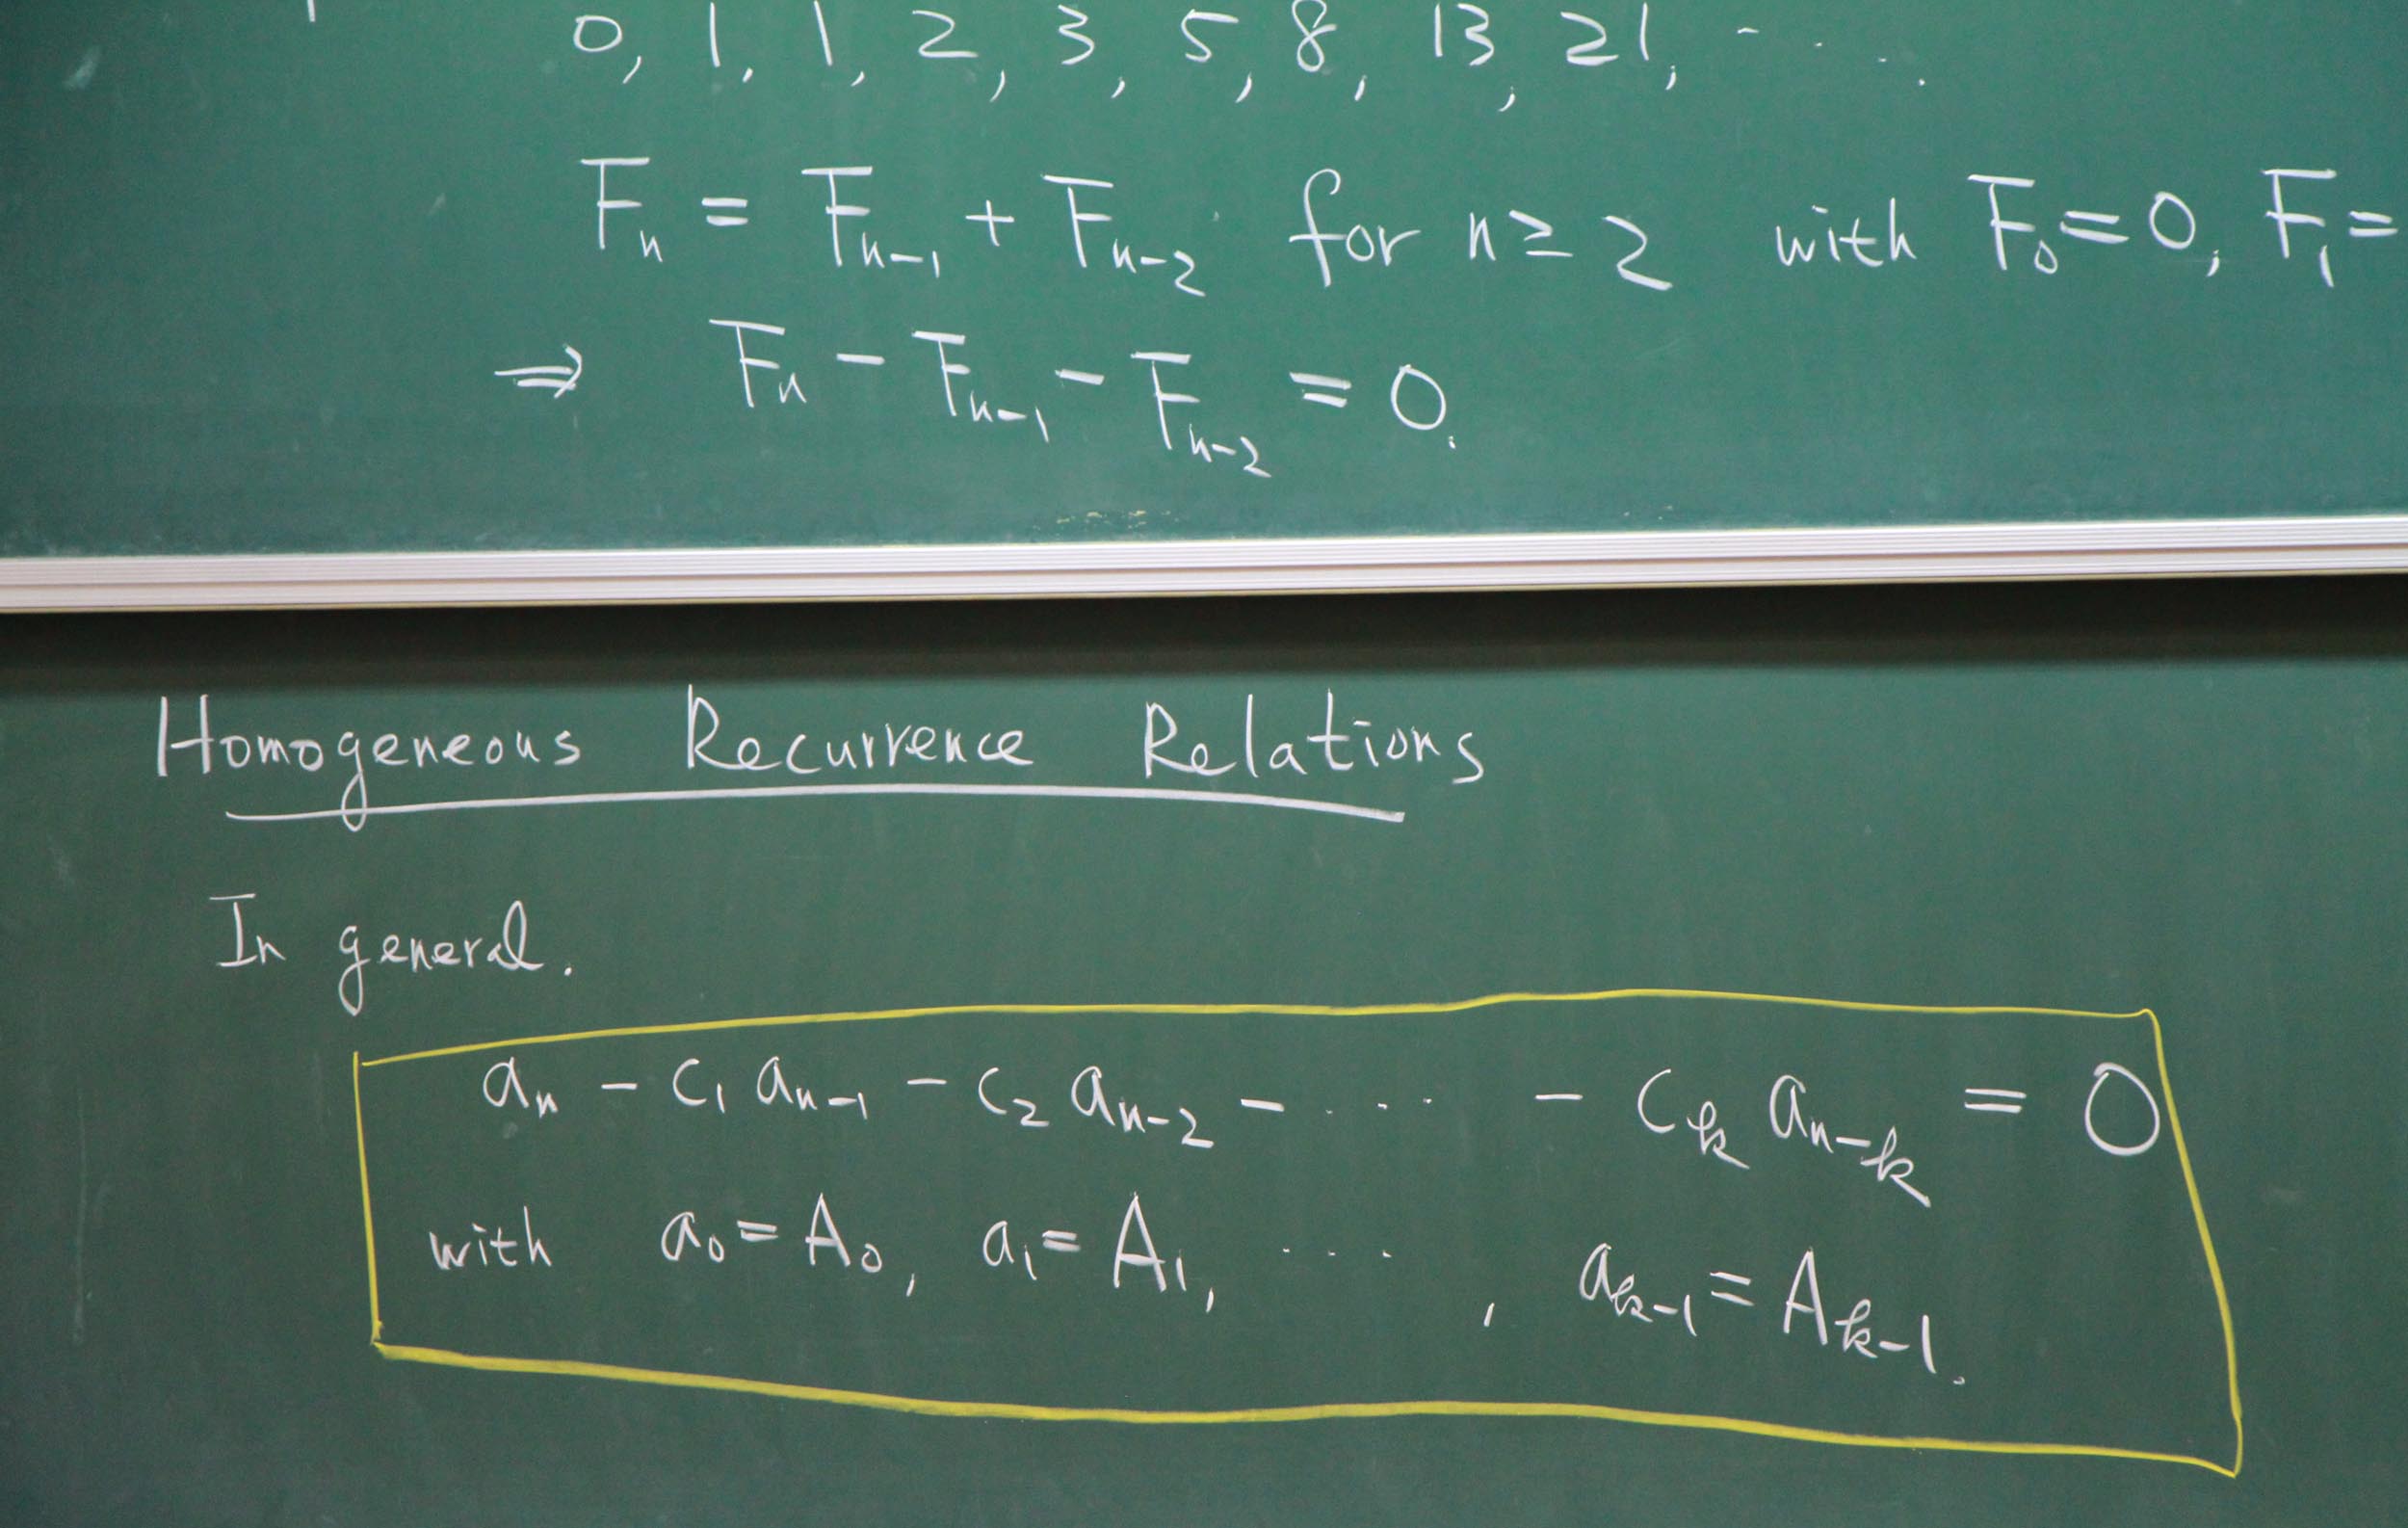 0, 1, 1, 2, 3, 5, 8, 13, 21, ....
Fₙ = Fₙ₋₁ + Fₙ₋₂ for n ≥ 2 with F₀ = 0, F₁ =
⇒ Fₙ - Fₙ₋₁ - Fₙ₋₂ = 0.
Homogeneous Recurrence Relations
In general.
aₙ - c₁ aₙ₋₁ - c₂ aₙ₋₂ - .... - cₖ aₙ₋ₖ = 0
with a₀ = A₀, a₁ = A₁, ...., aₖ₋₁ = Aₖ₋₁.